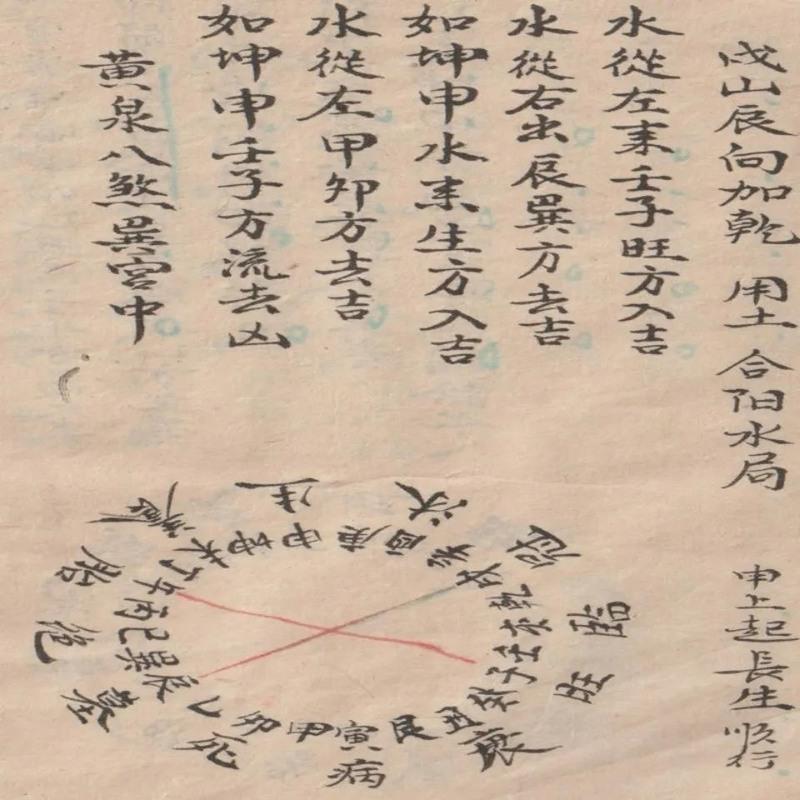 戌山辰向加乾 用土 合阳水局 申上起長生順行
水從左来壬子旺方入吉
水從右出辰巽方去吉
如坤申水来生方入吉
水從左甲卯方去吉
如坤申壬子方流去凶
黄泉八煞巽宫中
養 生 沐 冠 臨 旺 衰 病 死 墓 绝 胎
午 丁 未 坤 申 庚 酉 辛 戌 乾 亥 壬 子 癸 丑 艮 寅 甲 卯 乙 辰 巽 巳 丙